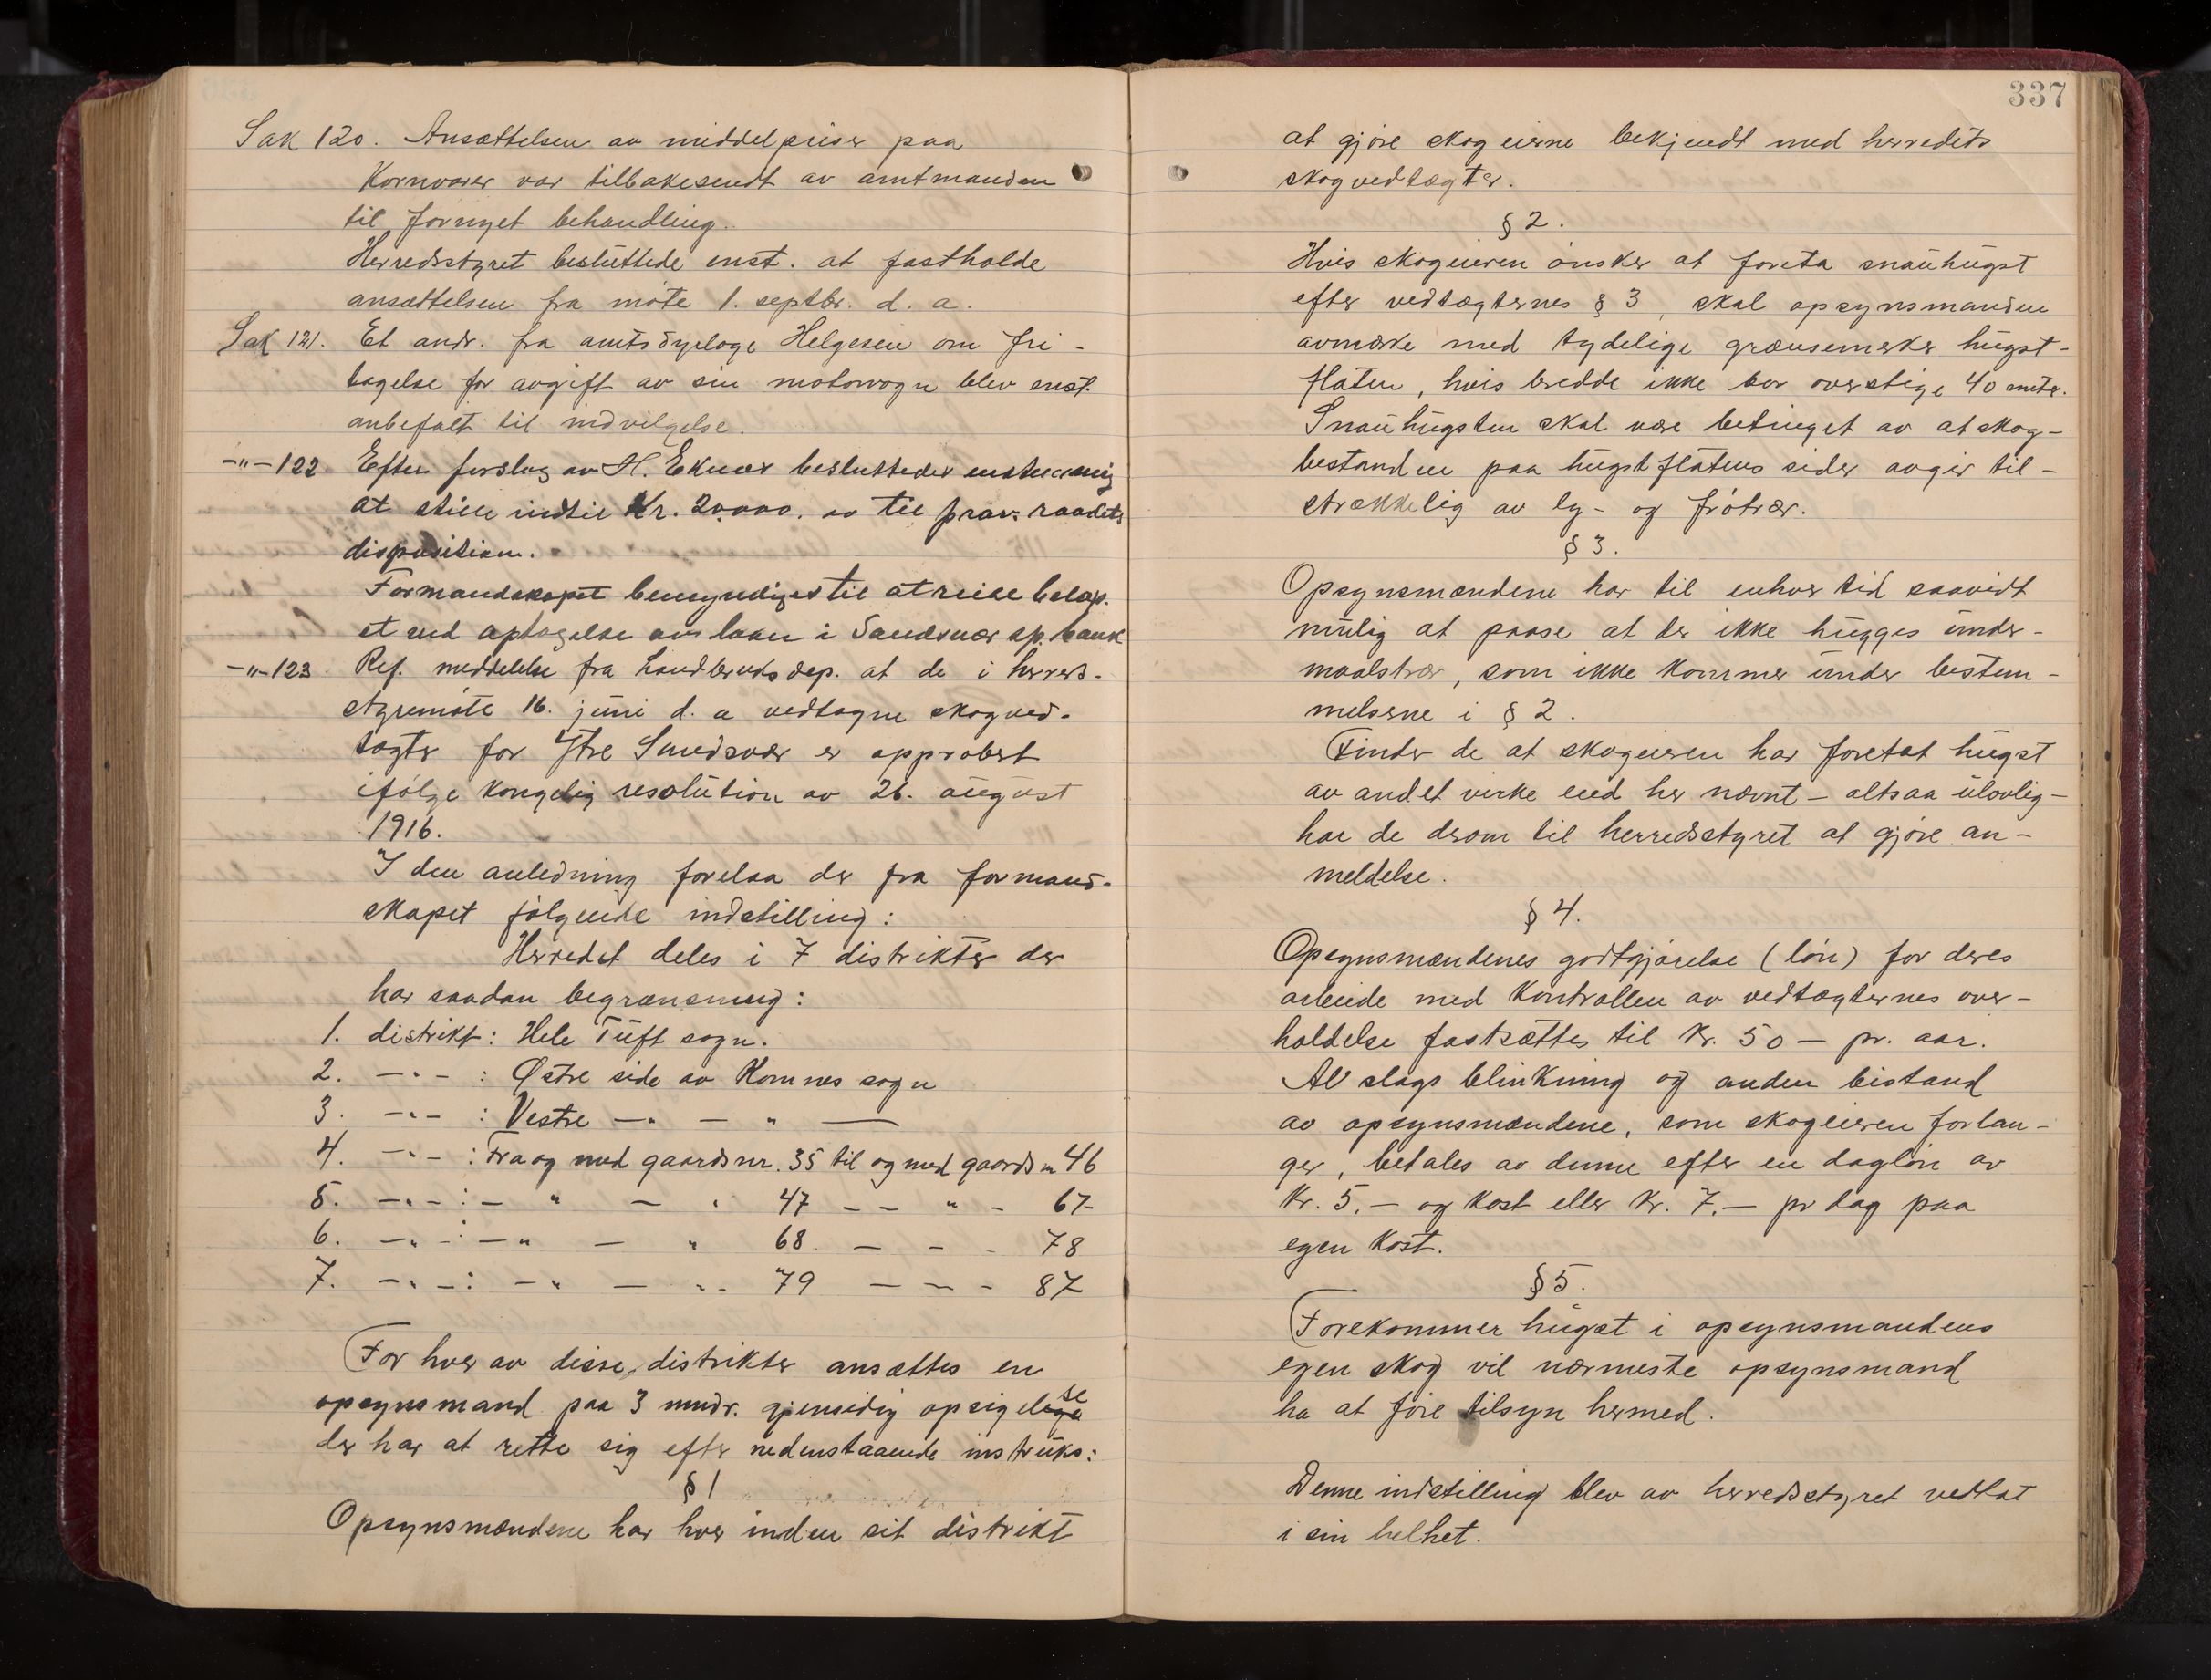 Sak 120. Ansættelsen av middelpriser paa
Kornvarer var tilbakesendt av amtmanden
til fornyet behandling.
Herredsstyret besluttede enst. at fastholde
ansættelsen fra møte 1. septbr. d. a.
Sak 121. Et andr. fra amtsdyrlæge Helgesen om fri-
tagelse for avgift av sin motorvogn blev enst.
anbefalt til indvilgelse.
-"-122 Efter forslag av H. Eknær beslutteder enstemmig
at stille indtil Kr. 20,000. til prov. raadets
disposition.
Formandskapet bemyndiges til at reise beløp-
et ved optagelse av laan i Sandsvær sp.bank
-"-123 Ref. meddelelse fra Landbruksdep. at de i herreds-
styremøte 16. juni d. a vedtagne skogved-
tægter for Ytre Sandsvær er approbert
ifølge kongelig resolution av 26. august
1916.
I den anledning forelaa der fra formand-
skapet følgende indstilling:
Herredet deles i 7 distrikter der
har saadan begrænsning:
1. distrikt: Hele Tuft sogn.
2. -"- : Østre side av Komnes sogn
3. -"- : Vestre -" - " -
4. -"- : Fra og med gaardsnr. 35 til og med gaardsnr 46
5. -"- : - " - " 47 - - " - 67
6. -"- : - " - " 68 - - - 78
7. -"- : - " - " - 79 - - - 87
For hver av disse distrikter ansættes en
opsynsmand paa 3 mndr. gjensidig opsigelse
der har at rette sig efter nedenstaaende instruks:
§ 1
Opsynsmændene har hver inden sit distrikt
337
at gjøre skogeierne bekjendt med herredets
skogvedtægter.
§ 2.
Hvis skogeieren ønsker at foreta snauhugst
efter vedtægternes § 3, skal opsynsmanden
avmerke med tydelige grænsemerker hugst-
flaten, hvis bredde ikke bør overstige 40 meter.
Snauhugsten skal være betinget av at skog-
bestanden paa hugstflatens sider avgir til-
strækkelig av ly- og frøtrær.
§ 3.
Opsynsmændene har til enhver tid saavidt
mulig at paase at der ikke hugges under-
maalstrær, som ikke kommer under bestem-
melserne i § 2.
Finder de at skogeieren har foretat hugst
av andet virke end her nævnt - altsaa ulovlig -
har de derom til herredsstyret at gjøre an-
meldelse.
§ 4.
Opsynsmændenes godtgjørelse (løn) for deres
arbeide med Kontrollen av vedtægternes over-
holdelse fastsættes til Kr. 50 - pr. aar.
All slags blinkning og anden bistand
av opsynsmændene, som skogeieren forlan-
ger, betales av denne efter en dagløn av
Kr. 5.- og kost eller Kr. 7.- pr dag paa
egen kost.
§ 5.
Forekommer hugst i opsynsmandens
egen skog vil nærmeste opsynsmand
ha at føre tilsyn hermed.
Denne indstilling blev av herredsstyret vedtat
i sin helhet.